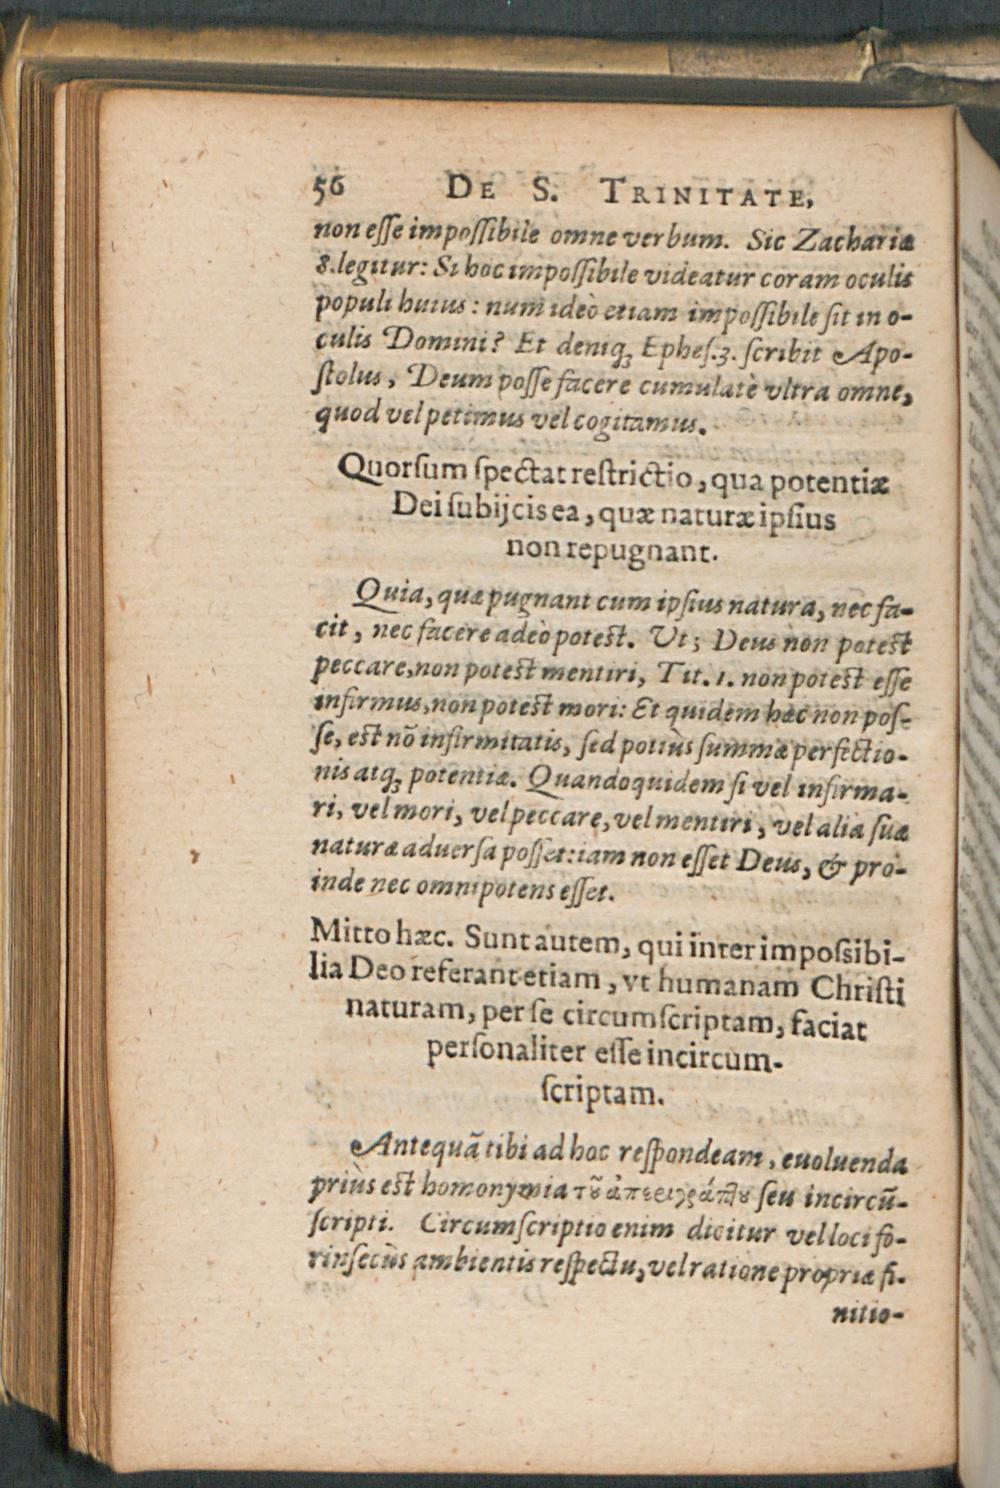 56 DE S. TRINITATE,
non esse impossibile omne verbum. Sic Zachariæ
8. legitur: Si hoc impossibile videatur coram oculis
populi huius: num ideò etiam impossibile sit in o-
culis Domini? Et deniq; Ephes. 3. scribit Apo-
stolus, Deum posse facere cumulatè vltra omne,
quod vel petimus vel cogitamus.
Quorsum spectat restrictio, qua potentiæ
Dei subijcis ea, quæ naturæ ipsius
non repugnant.
Quia, quæ pugnant cum ipsius natura, nec fa-
cit, nec facere adeò potest. Vt; Deus non potest
peccare, non potest mentiri, Tit. 1. non potest esse
infirmus, non potest mori: Et quidem hæc non pos-
se, est nō infirmitatis, sed potiùs summæ perfectio-
nis atq; potentiæ. Quandoquidem si vel infirma-
ri, vel mori, vel peccare, vel mentiri, vel alia suæ
naturæ aduersa posset: iam non esset Deus, & pro-
inde nec omnipotens esset.
Mitto hæc. Sunt autem, qui inter impossibi-
lia Deo referant etiam, vt humanam Christi
naturam, per se circumscriptam, faciat
personaliter esse incircum-
scriptam.
Antequā tibi ad hoc respondeam, euoluenda
priùs est homonymia τοῦ ἀπεριγράπτου seu incircū-
scripti. Circumscriptio enim dicitur vel loci fo-
rinsecùs ambientis respectu, vel ratione propriæ fi-
nitio-